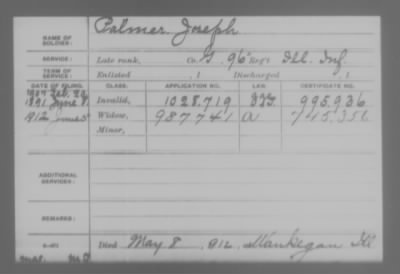 Palmer, Joseph
NAME OF SOLDIER:
SERVICE: Late rank, Co. G, 96" Reg't Ill. Inf.
TERM OF SERVICE: Enlisted , 1 Discharged , 1
DATE OF FILING. CLASS. APPLICATION NO. LAW. CERTIFICATE NO.
1907 Feb.
1891 June 8. Invalid, 1028.719 995.936
1912 June Widow, 987741 a 745.356
Minor,
ADDITIONAL SERVICES:
REMARKS:
Died May 8, 1912, Waukegan Ill